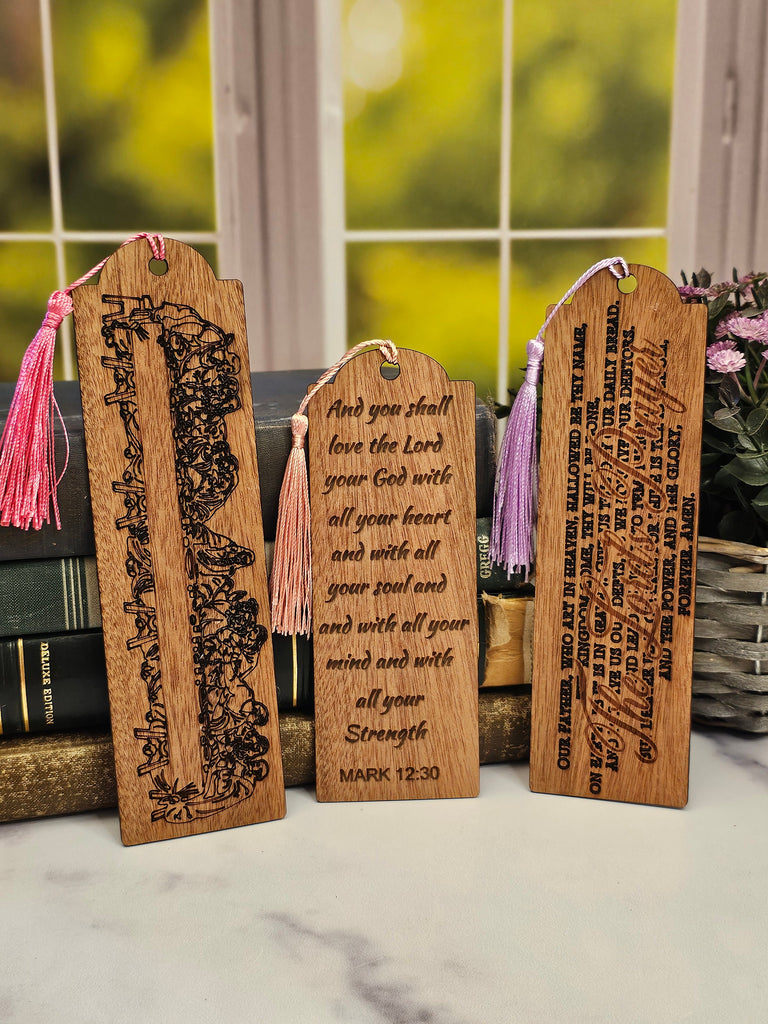 DELUXE EDITION
And you shall
love the Lord
your God with
all your heart
and with all
your soul and
and with all your
mind and with
all your
Strength
MARK 12:30
GREGG
OUR FATHER, WHO ART IN HEAVEN, HALLOWED BE THY NAME,
KINGDOM THY WILL BE DONE,
ON IS IN OUR DAILY BREAD,
US OUR DEBTS, WE OUR DEBTORS.
AND THE POWER, AND THE GLORY,
FOREVER AMEN.
The Lord's Prayer